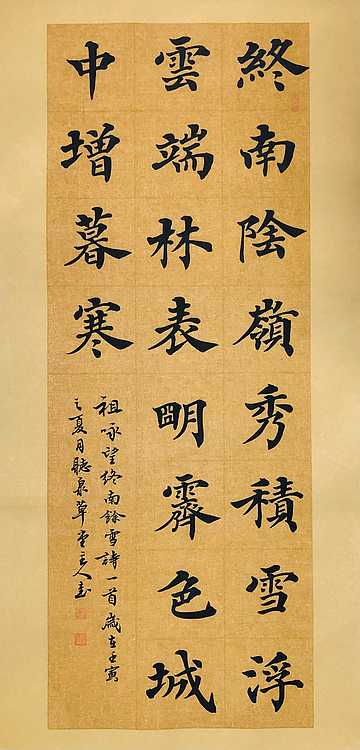 終南陰嶺秀積雪浮
雲端林表朙霽色城
中增暮寒
祖咏望終南餘雪詩一首歲在壬寅
之夏月聽泉草堂主人書